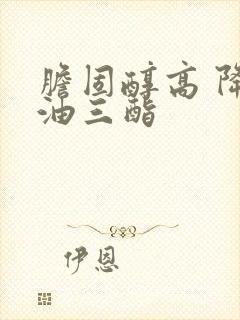 膽固醇高 降
油三酯
伊恩